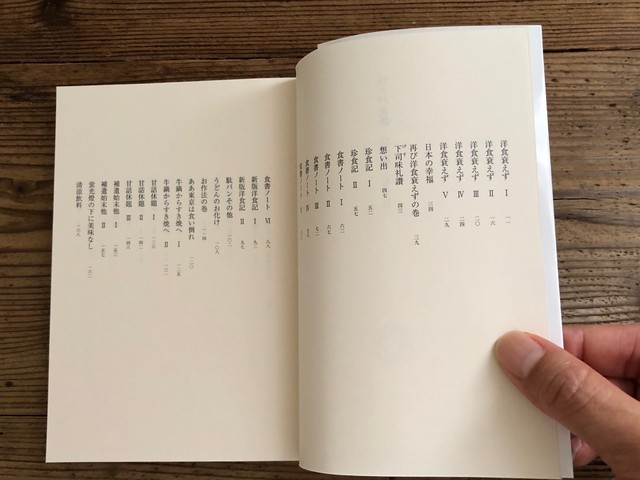 洋食衰えず Ⅰ 一一
洋食衰えず Ⅱ 一六
洋食衰えず Ⅲ 二〇
洋食衰えず Ⅳ 二四
洋食衰えず Ⅴ 二九
日本の幸福 三四
再び洋食衰えずの巻 三九
下司味礼讃 四三
想い出 四七
珍食記 Ⅰ 五二
珍食記 Ⅱ 五七
食書ノート Ⅰ 六二
食書ノート Ⅱ 六七
食書ノート Ⅲ 七二
食書ノート Ⅳ
食書ノート
食書ノート Ⅵ 八八
新版洋食記 Ⅰ 九二
新版洋食記 Ⅱ 九七
駄パンその他 一〇二
うどんのお化け 一〇八
お作法の巻 一一四
ああ東京は食い倒れ 一二〇
牛鍋からすき焼へ Ⅰ 一二五
牛鍋からすき焼へ Ⅱ 一三一
甘話休題 Ⅰ
甘話休題 Ⅱ 一四二
甘話休題 Ⅲ 一四八
補遺始末他 Ⅰ 一五二
補遺始末他 Ⅱ 一五七
蛍光燈の下に美味なし 一六二
清涼飲料 一六八